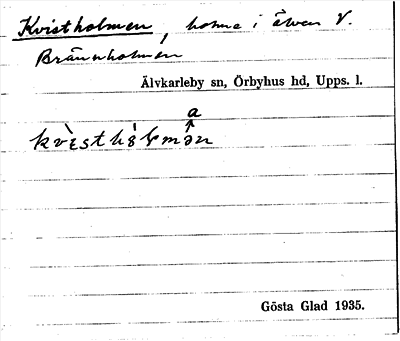 Kvistholmen, holme i älven V.
Brännholmen
Älvkarleby sn, Örbyhus hd, Upps. l.
a
Gösta Glad 1935.